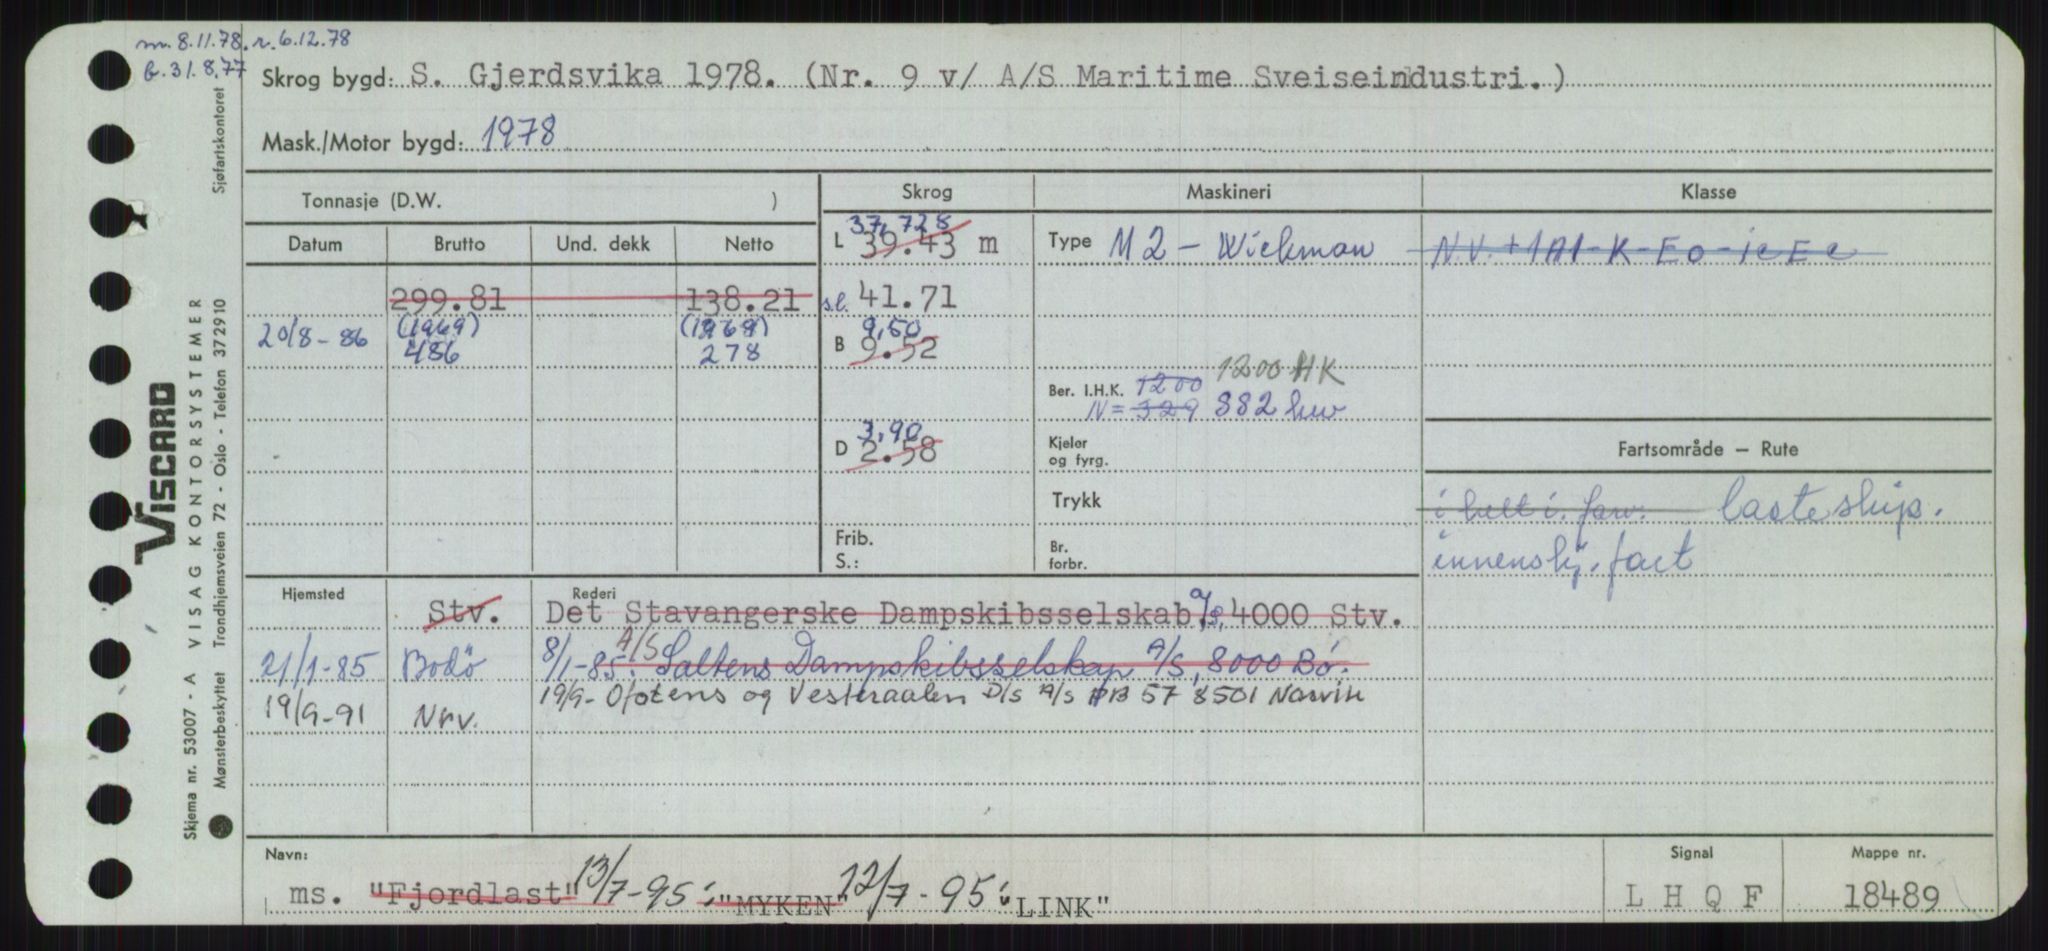 m. 8.11.78. r. 6.12.78
b. 31.8.77
Skrog bygd: S. Gjerdsvika 1978. (Nr. 9 v/ A/S Maritime Sveiseindustri.)
Mask./Motor bygd: 1978
Tonnasje (D.W. )
Skrog Maskineri Klasse
Datum Brutto Und. dekk Netto
37,728
L 39.43 m
Type M2 - Wickman
N.V. + 1A1-K-EO-iceC
299.81 138.21
s.l. 41.71
20/8-86 (1969) (1969)
486 278
9,50
B 9.52
1200 HK
Ber. I.H.K. 1200
N = 329 882 kw
3,90
D 2.58
Kjeler
og fyrg.
Fartsområde – Rute
Trykk
i belt i. farv. lasteskip.
innenskj. fart
Frib.
S.:
Br.
forbr.
Hjemsted Rederi
Stv. Det Stavangerske Dampskibsselskab, a/s, 4000 Stv.
21/1-85 Bodö 8/1-85: A/S Saltens Dampskibsselskap A/S, 8000 Bö.
19/9-91 Nrv. 19/9- Ofotens og Vesteraalen D/S A/S PB 57 8501 Narvik
Navn: Signal Mappe nr.
ms. "Fjordlast" 13/7-95: "MYKEN" 12/7-95: "LINK" L H Q F 18489
Sjøfartskontoret
VISCARD
VISAG KONTORSYSTEMER
Trondhjemsveien 72 - Oslo - Telefon 372910
Skjema nr. 53007 - A
Mønsterbeskyttet